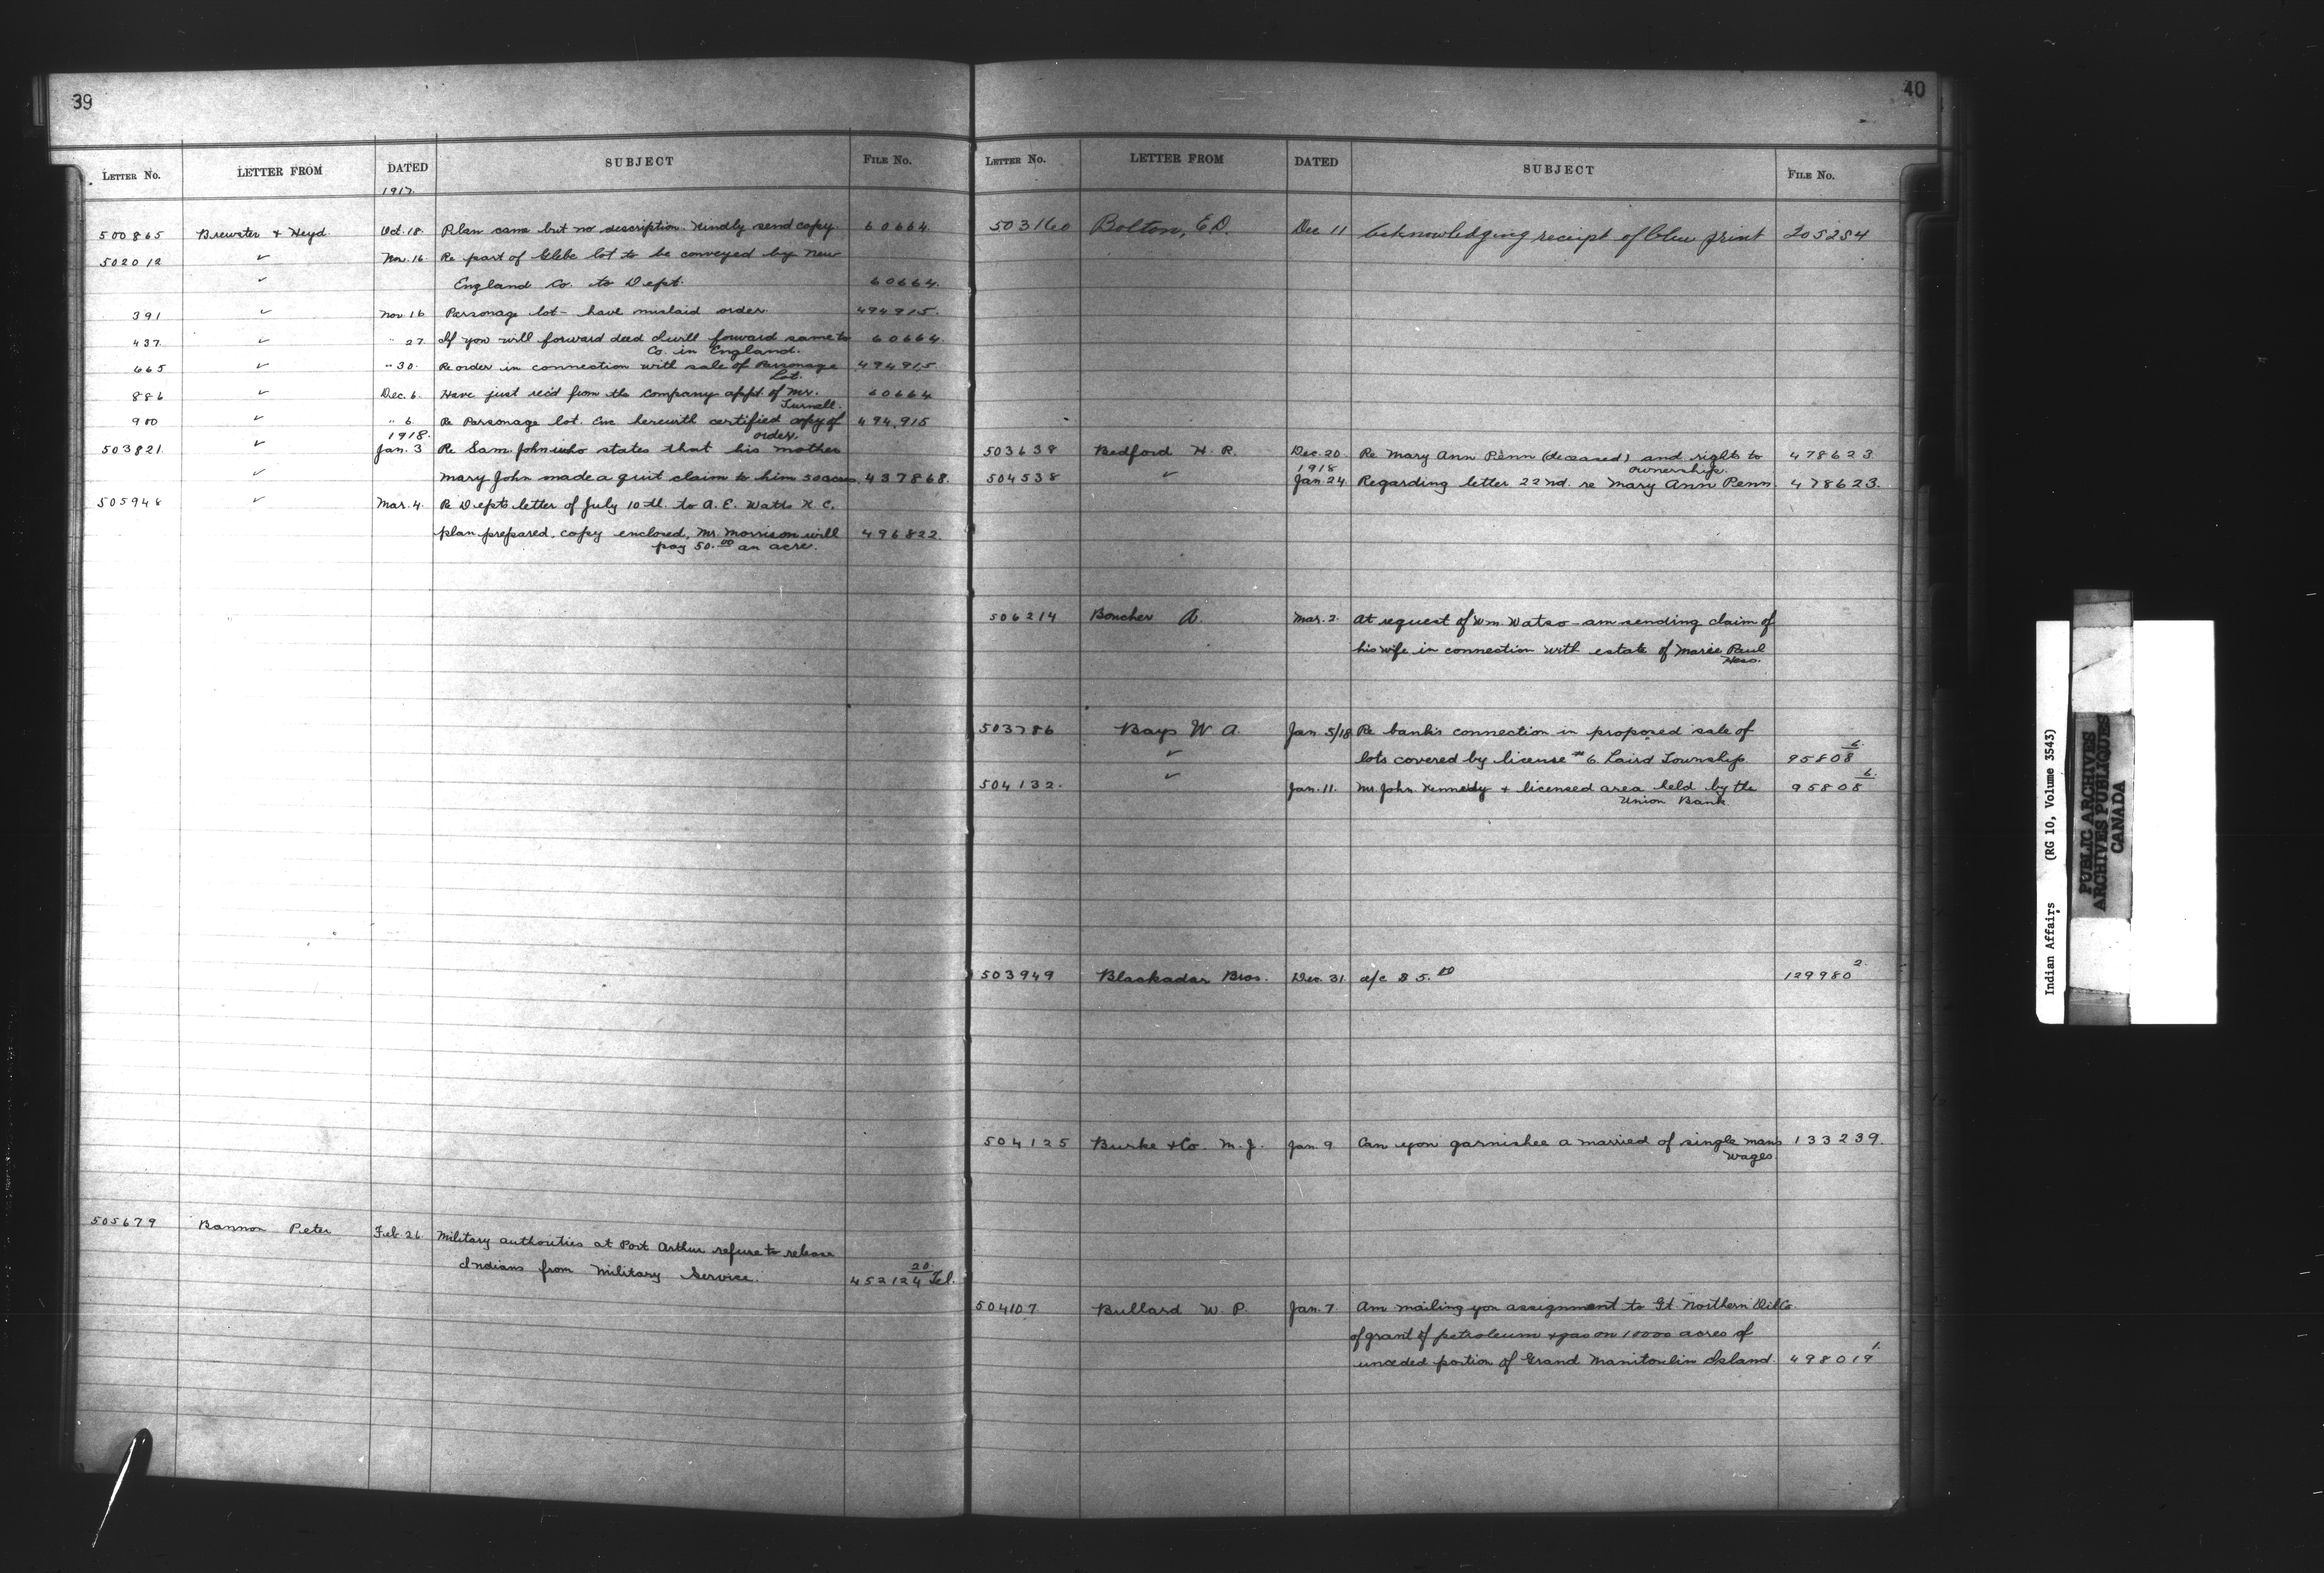 39
LETTER No. LETTER FROM DATED SUBJECT FILE No.
1917.
500865 Brewster & Heyd Oct. 18 Plan came but no description. Kindly send copy 60664.
502012 ✓ Nov. 16 Re part of Glebe lot to be conveyed by New
✓ England Co. to Dept. 60664.
391 ✓ Nov 16 Parsonage lot - have mislaid order. 494915.
437. ✓ " 27 If you will forward deed I will forward same to 60664.
Co. in England.
665 ✓ " 30. Re order in connection with sale of Parsonage 494915.
Lot.
886 ✓ Dec. 6. Have just rec'd from the Company appt. of Mr. 60664
900 ✓ " 6. Re Parsonage lot. Enc herewith certified copy of 494,915
order.
1918.
503821. ✓ Jan. 3 Re Sam. John who states that his mother
✓ Mary John made a quit claim to him 50 acres. 437868.
505948 ✓ Mar. 4. Re Depts letter of July 10th. to A. E. Watts K. C.
plan prepared. copy enclosed, Mr. Morrison will 496822.
pay 50.00 an acre.
505679 Bannon Peter Feb. 26 Military authorities at Port Arthur refuse to release
Indians from Military Service. 452124 20. Tel.
40
LETTER No. LETTER FROM DATED SUBJECT FILE No.
503160 Bolton, E.D. Dec 11 Acknowledging receipt of blue print 205254
503638 Bedford H. R. Dec. 20 Re Mary Ann Penn (deceased) and right to 478623
ownership.
1918
504538 ✓ Jan. 24 Regarding letter 22nd. re Mary Ann Penn 478623.
506214 Boucher A. Mar. 2. At request of Wm. Watso - am sending claim of
his wife in connection with estate of Marie Paul
503786 Bays W A. Jan 5/18 Re bank's connection in proposed sale of
✓ lots covered by license #6. Laird Township 95808 6.
504132. ✓ Jan. 11. Mr John Kennedy & licensed area held by the 95808 6.
Union Bank
503949 Blackadar Bros. Dec. 31 a/c $5.00 129980 2.
504125 Burke & Co. M. J. Jan. 9 Can you garnishee a married of single mans 133239.
wages.
504107 Bullard W. P. Jan. 7. Am mailing you assignment to Gt. Northern Oil Co.
of grant of petroleum & gas on 10000 acres of
unceded portion of Grand Manitoulin Island. 498019 1.
Indian Affairs (RG 10, Volume 3543)
PUBLIC ARCHIVES
ARCHIVES PUBLIQUES
CANADA